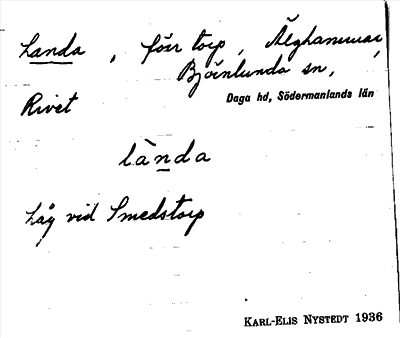 Landa, förr torp, Älghammar,
Björnlunda sn,
Rivet
Daga hd, Södermanlands län
lànda
Låg vid Smedstorp
KARL-ELIS NYSTEDT 1936